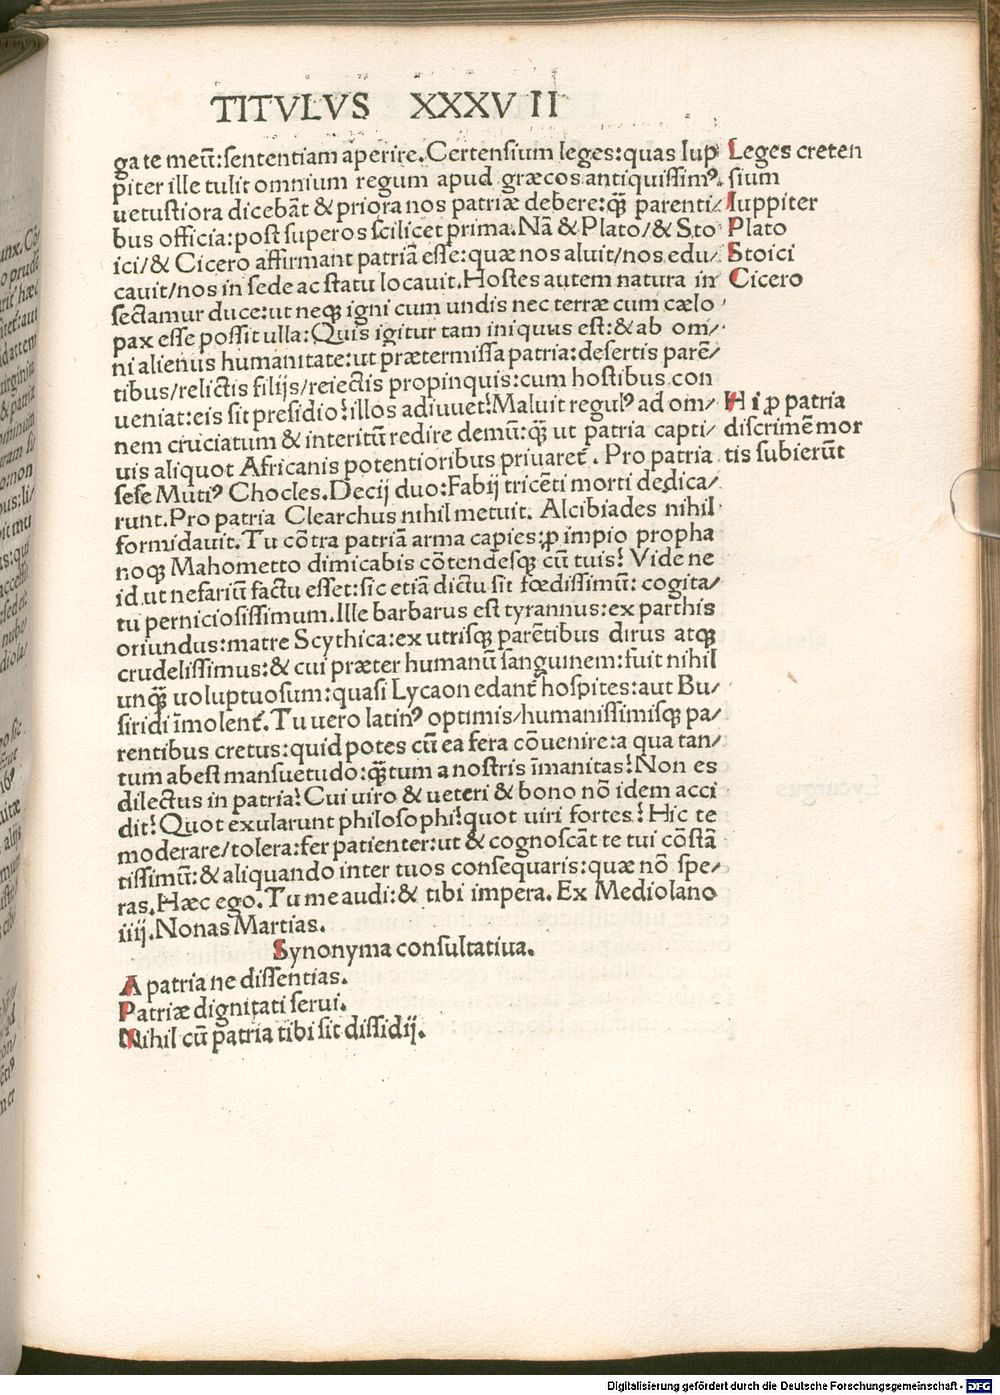 TITVLVS XXXVII
ga te meū:sententiam aperire.Certensium leges:quas Iup
piter ille tulit omnium regum apud græcos antiquissimꝰ.
uetustiora dicebāt & priora nos patriæ debere:ꝙ̄ parenti/
bus officia:post superos scilicet prima.Nā & Plato/& Sto
ici/& Cicero affirmant patriā esse:quæ nos aluit/nos edu/
cauit/nos in sede ac statu locauit.Hostes autem natura in
sectamur duce:ut neqꝫ igni cum undis nec terræ cum cælo
pax esse possit ulla:Quis igitur tam iniquus est:& ab om/
ni alienus humanitate:ut prætermissa patria:desertis parē/
tibus/relictis filijs/reiectis propinquis:cum hostibus con
ueniat:eis sit presidio?illos adiuuet?Maluit regulꝰ ad om/
nem cruciatum & interitū redire demū:ꝙ̄ ut patria capti/
uis aliquot Africanis potentioribus priuaret̄. Pro patria
sese Mutiꝰ Chocles.Decij duo:Fabij tricēti morti dedica/
runt.Pro patria Clearchus nihil metuit. Alcibiades nihil
formidauit.Tu cōtra patriā arma capies:ꝓ impio propha
noqꝫ Mahometto dimicabis cōtendesqꝫ cū tuis? Vide ne
id ut nefariū factu esset:sic etiā dictu sit fœdissimū: cogita/
tu perniciosissimum.Ille barbarus est tyrannus:ex parthis
oriundus:matre Scythica:ex utrisqꝫ parētibus dirus atqꝫ
crudelissimus:& cui præter humanū sanguinem:fuit nihil
unꝙ̄ uoluptuosum:quasi Lycaon edant̄ hospites:aut Bu/
siridi īmolent̄. Tu uero latinꝰ optimis/humanissimisqꝫ pa/
rentibus cretus:quid potes cū ea fera cōuenire:a qua tan/
tum abest mansuetudo:ꝙ̄tum a nostris īmanitas?Non es
dilectus in patria?Cui uiro & ueteri & bono nō idem acci
dit?Quot exularunt philosophi?quot uiri fortes? Hic te
moderare/tolera:fer patienter:ut & cognoscāt te tui cōstā
tissimū:& aliquando inter tuos consequaris:quæ nō spe/
ras.Hæc ego.Tu me audi:& tibi impera. Ex Mediolano
iiij.Nonas Martias.
Synonyma consultatiua.
A patria ne dissentias.
Patriæ dignitati serui.
Nihil cū patria tibi sit dissidij.
Leges creten
sium
Iuppiter
Plato
Stoici
Cicero
Hi ꝓ patria
discrimē mor
tis subierūt
Digitalisierung gefördert durch die Deutsche Forschungsgemeinschaft - DFG